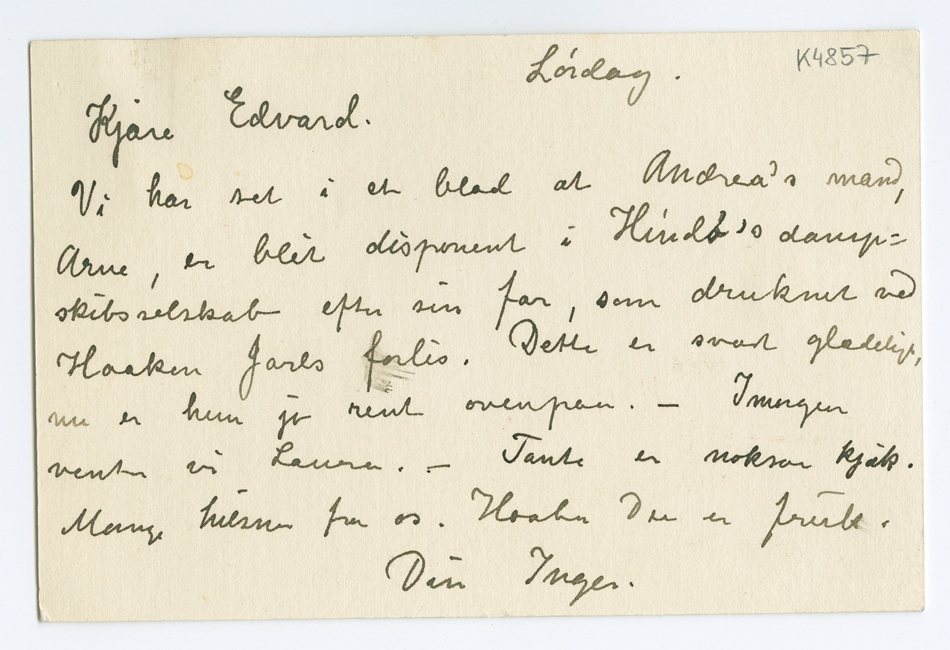 K4857
Lördag.
Kjære Edvard.
Vi har set i et blad at Andrea's mand,
Arne, er blit disponent i Hindö's damp=
skibsselskab efter sin far, som druknet ved
Haakon Jarls forlis. Dette er svært glædeligt,
nu er hun jo rent ovenpaa. – Imorgen
venter vi Laura. – Tante er noksaa kjæk.
Mange hilsner fra os. Haaber Du er frisk.
Din Inger.